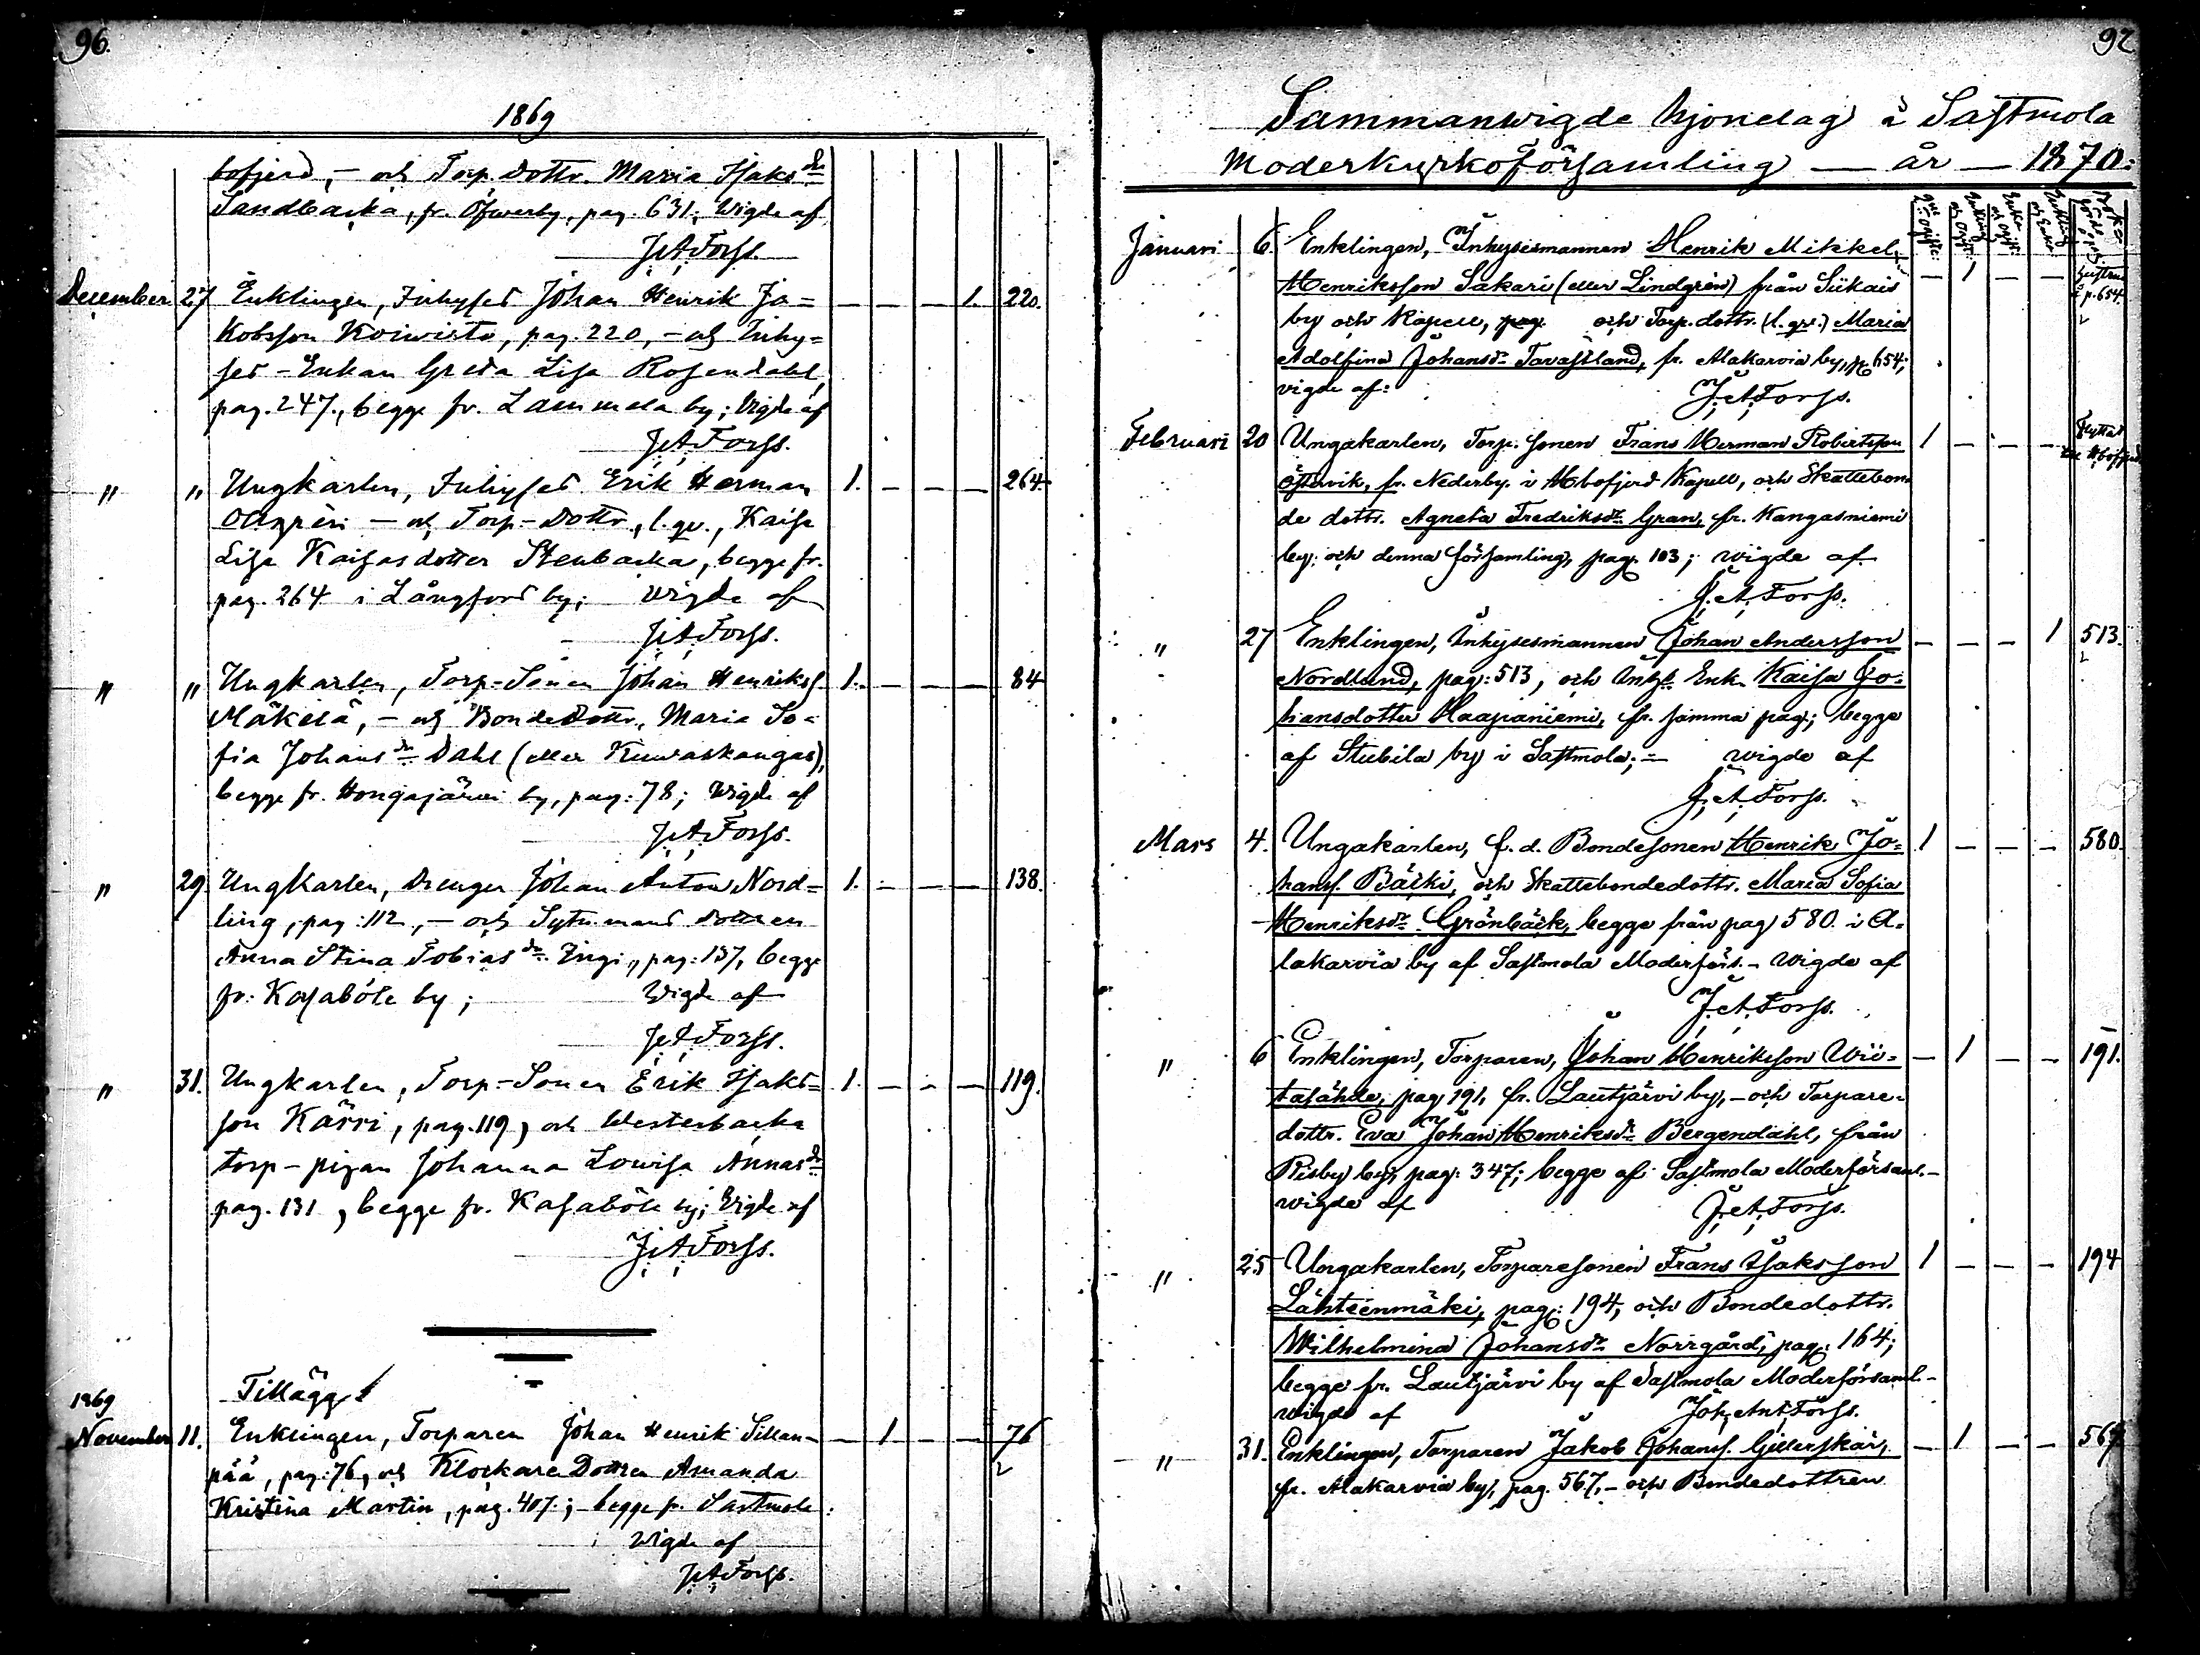 96.
1869
bofjerd, – och Torp. Dottr. Maria Isaksdr
Sandbacka, fr. Öfwerby, pag. 631; Wigde af
J.A. Forss.
December 27 Enklingen, Inhyses Johan Henrik Ja= — — — 1. 220.
kobsson Koiwisto, pag. 220, – och Inhy=
ses – Enkan Greta Lisa Rosendahl,
pag. 247., begge fr. Lammela by; Wigde af
J.A. Forss.
" " Ungkarlen, Inhyses Erik Herman 1. — — — 264.
– och Torp.-Dottr., l. qv., Kaisa
Lisa Kaisasdotter Stenbacka, begge fr.
pag. 264 i Långfors by; Wigde af
J.A. Forss.
" " Ungkarlen, Torp-Sonen Johan Henrikss. 1. — — — 84
Mäkelä, – och BondeDottr. Maria So=
fia Johansdr Dahl (eller Kuwaskangas),
begge fr. Hongajärwi by, pag: 78; Wigde af
J.A. Forss.
" 29. Ungkarlen, Drengen Johan Anton Nord= 1. — — — 138.
ling, pag: 112, – och Sytn.mans dottren
Anna Stina Tobiasdr Yngi, pag: 137, begge
fr. Kasaböle by; Wigde af
J.A. Forss.
" 31. Ungkarlen, Torp-Sonen Erik Isaks= 1. — — — 119.
son Kärri, pag. 119, och Westerbacka
torp-pigan Johanna Lowisa Annasdr
pag. 131, begge fr. Kasaböle by; Wigde af
J.A. Forss.
Tillägg
1869
November 11. Enklingen, Torparen Johan Henrik Sillan- — 1 — — 76
pää, pag: 76, och KlockareDottren Amanda 2
Kristina Martin, pag. 407.; – begge fr. Sastmola:
Wigde af
J.A. Forss.
97
Sammanwigde hjonelag i Sastmola
Moderkyrkoförsamling — år — 1870:
Januari 6. Enklingen, Inhysesmannen Henrik Mikkel — 1 — —
Henriksson Sakari (eller Lindgrén) från Siikais å p. 654.
by och Kapell, pag. och Torp. dottr. (l. qv.) Maria 2
Adolfina Johansdr Tavastland, fr. Alakarvia by, pag 654;
vigde af: J.A. Forss.
Februari 20 Ungakarlen, Torp. sonen Frans Herman Robertsson 1 — — — Flyttat
Östervik, fr. Nederby i Hvbofjerd Kapell, och Skattebon=
de dottr. Agneta Fredriksdr Gran, fr. Kangasniemi
by: och denna församling, pag. 103; wigde af
J.A. Forss.
" 27 Enklingen, Inhysesmannen Johan Andersson — — — 1 513.
Nordlund, pag: 513, och Inhs. Enk. Kaisa Jo= 2
hansdotter Haapaniemi, fr. samma pag; begge
af Stubila by i Sastmola; – wigde af
J.A. Forss.
Mars 4. Ungakarlen, f. d. Bondesonen Henrik Jo= 1 — — — 580.
hanss. Bäcki, och Skattebondedottr. Maria Sofia
Henriksdr Grönbäck, begge från pag 580. i A=
lakarvia by af Sastmola Moderförs. – Wigde af
J.A. Forss.
" 6 Enklingen, Torparen, Johan Henriksson Wii= — 1 — — 191.
talähde, pag 191, fr. Lautjärvi by, – och Torpare=
dottr. Eva Johan Henriksdr Bergendahl, från
Risby by, pag: 347; begge af Sastmola Moderförsaml. –
wigde af J.A. Forss.
" 25 Ungakarlen, Torparesonen Frans Isaksson 1 — — — 194
Lähteenmäki, pag: 194, och Bondedottr.
Wilhelmina Johansdr Norrgård, pag. 164;
begge fr. Lautjärvi by af Sastmola Moderförsaml. –
wigde af Joh. Ant. Forss.
" 31. Enklingen, Torparen Jakob Johanss. Gillerskär, — 1 — — 567
fr. Alakarvia by, pag. 567, – och Bondedottren